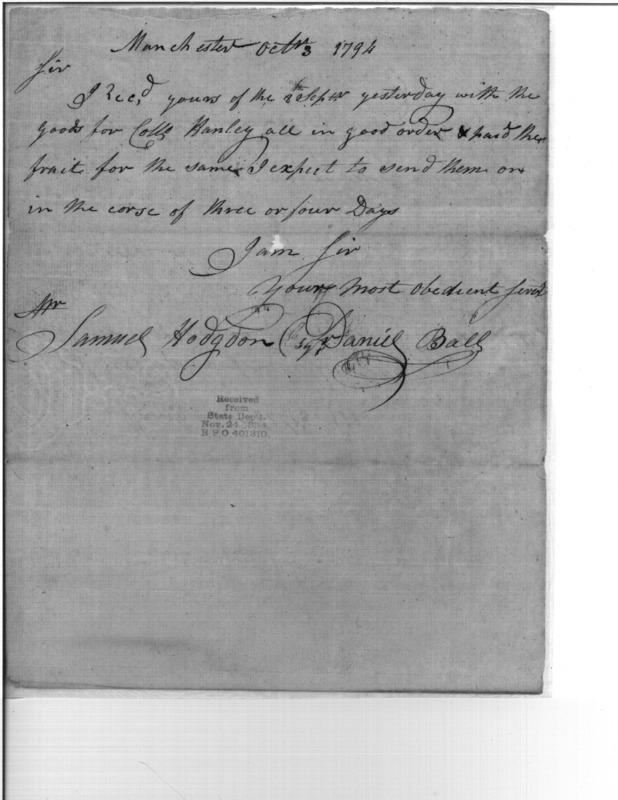 Manchester Octr 3 1794
Sir
I Rec,d yours of the Sepr yesterday with the
goods for Coll Hanley all in good order & paid the
frait for the same I expect to send them on
in the corse of three or four Days
I am Sir
Yours Most Obedient Servt
Mr
Samuel Hodgdon Esqr Daniel Ball
Received
from
State Dept.
Nov. 24, 1894
R P O 401310.